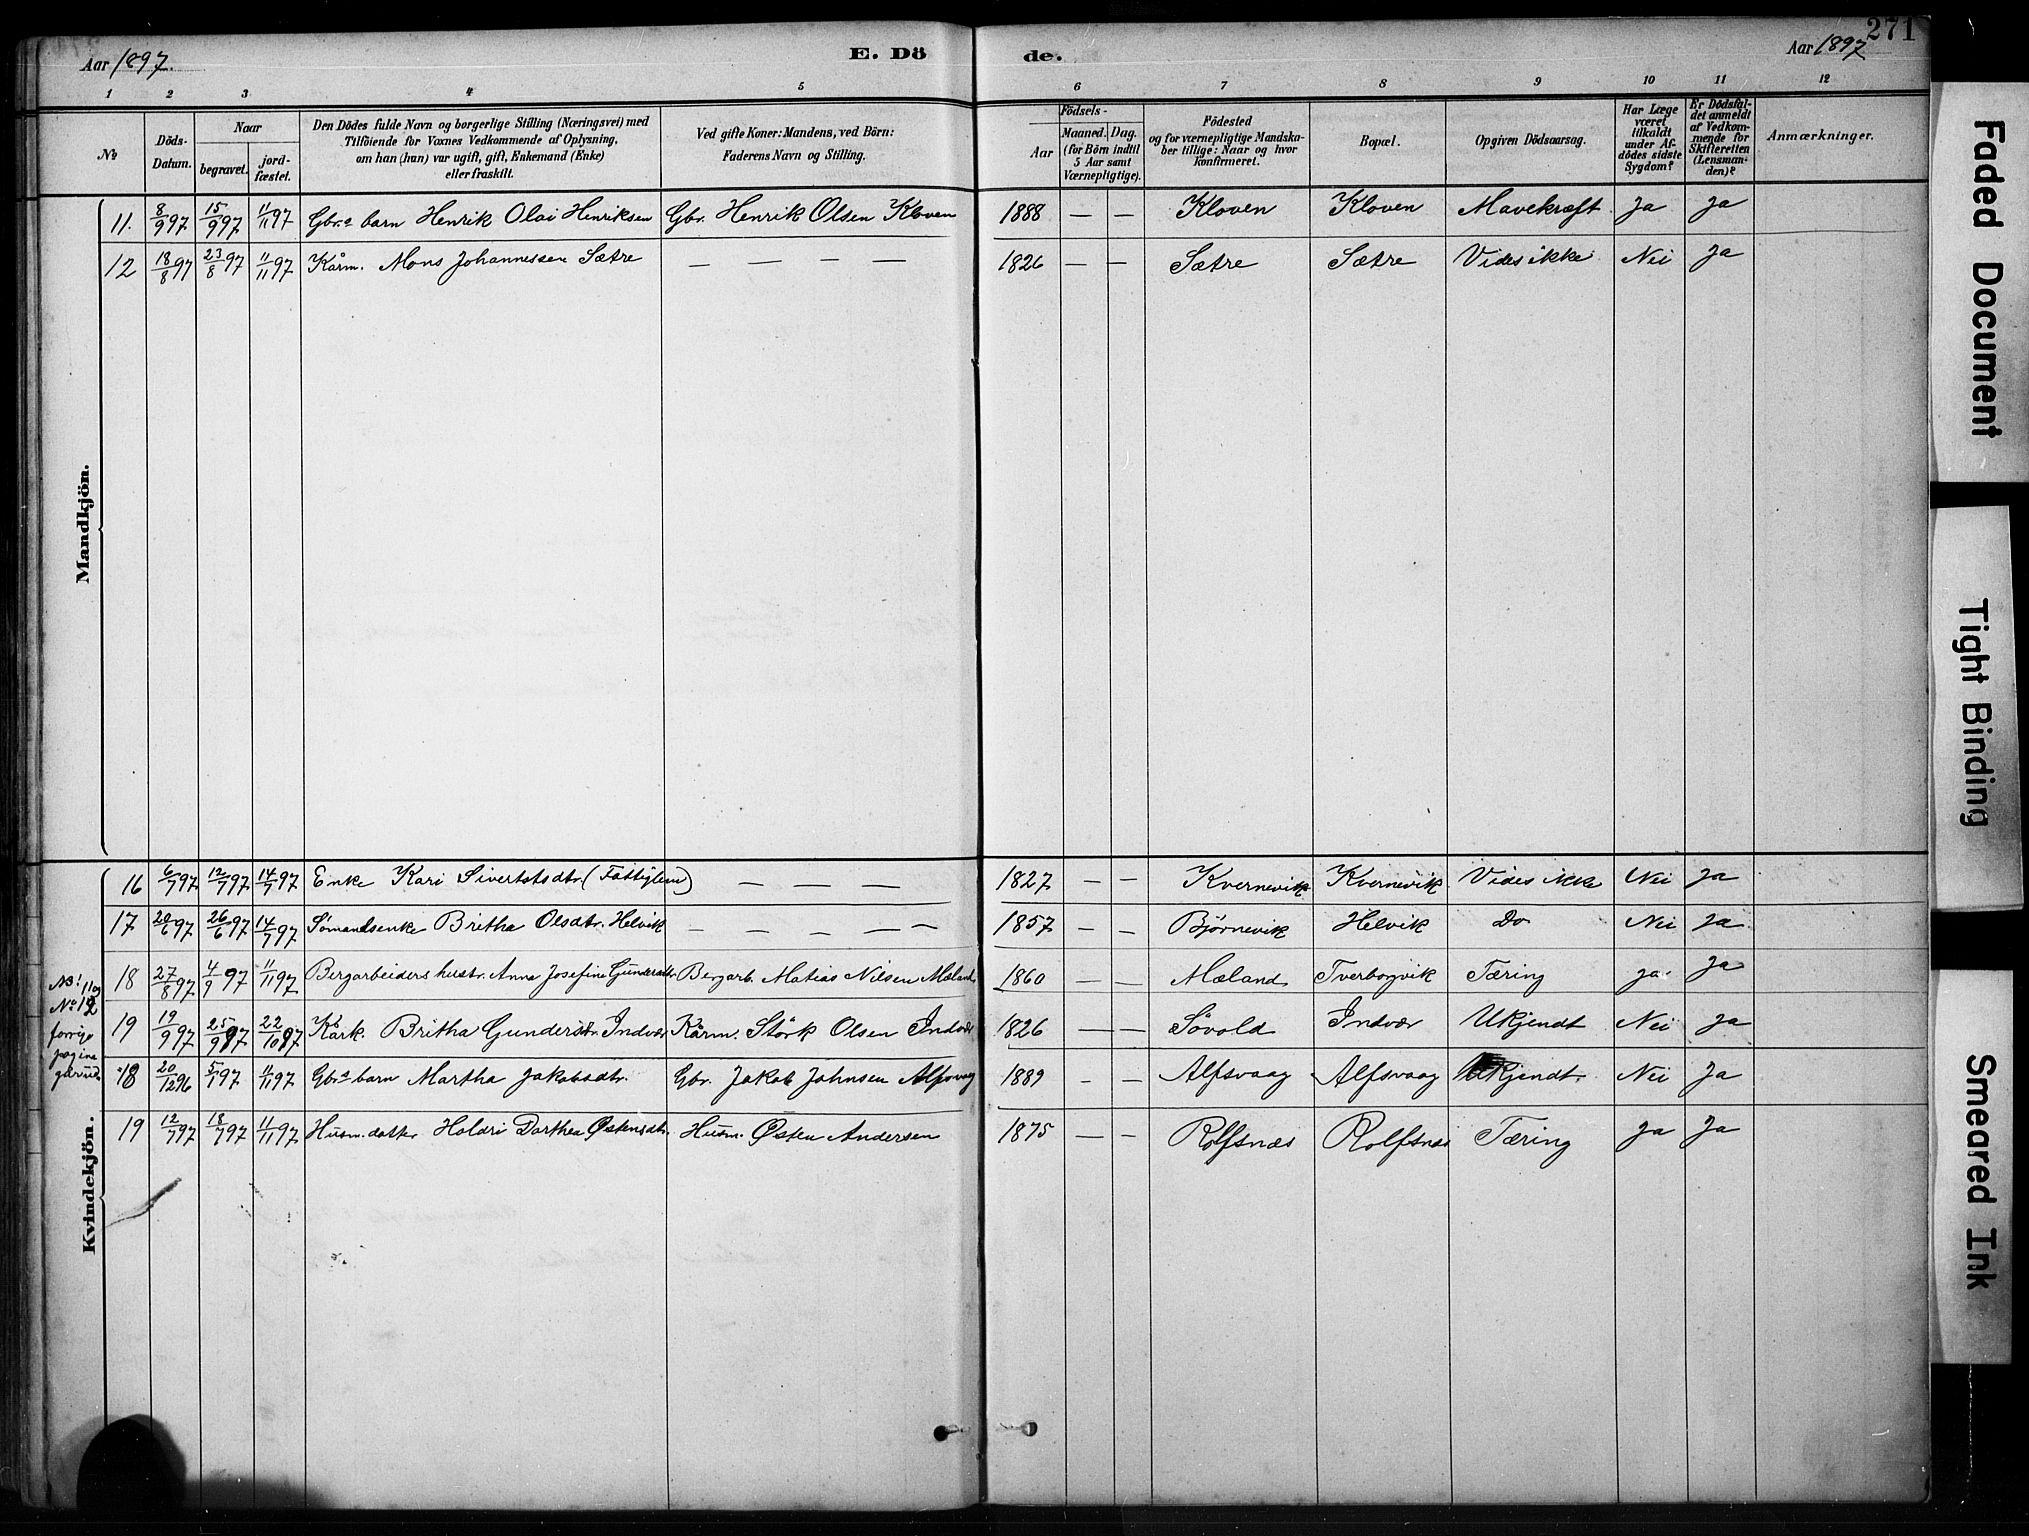 271
Aar 1897.
E. Dö
de.
Aar 1897
1 2 3 4 5 6 7 8 9 10 11 12
No
Döds-Datum.
Naar
begravet.
jord-fæstet.
Den Dödes fulde Navn og borgerlige Stilling (Næringsvei) med
Tilföiende for Voxnes Vedkommende af Oplysning,
om han (hun) var ugift, gift, Enkemand (Enke)
eller fraskilt.
Ved gifte Koner: Mandens, ved Börn:
Faderens Navn og Stilling.
Födsels-
Aar
Maaned. Dag.
(for Börn indtil
5 Aar samt
Værnepligtige).
Födested
og for værnepligtige Mandska-
ber tillige: Naar og hvor
konfirmeret.
Bopæl.
Opgiven Dödsaarsag.
Har Læge
været
tilkaldt
under Af-
dödes sidste
Sygdom?
Er Dödsfal-
det anmeldt
af Vedkom-
mende for
Skifteretten
(Lensman-
den)?
Anmærkninger.
Mandkjön.
11. 8/9 97 15/9 97 11/11 97 Gbr.s barn Henrik Olai Henriksen Gbr. Henrik Olsen Kloven 1888 — — Kloven Kloven Mavekræft Ja Ja
12 18/8 97 23/8 97 11/11 97 Kårm. Mons Johannessen Sætre — — — — 1826 — — Sætre Sætre Vides ikke Nei Ja
Kvindekjön.
16 6/7 97 12/7 97 14/7 97 Enke Kari Sivertsdtr. (Fattiglem) — — — 1827 — — Kvernevik Kvernevik Vides ikke Nei Ja
17 20/6 97 26/6 97 14/7 97 Sømandsenke Britha Olsdtr. Helvik — — — — — 1857 — — Bjørnevik Helvik Do Nei Ja
18 27/8 97 4/9 97 11/11 97 Bergarbeiders hustr. Anna Josefine Gundersdtr. Bergarb. Matias Nilsen Mæland 1860 — — Mæland Tverborgvik Tæring ja. Ja
19 19/9 97 25/9 97 22/10 97 Kårk. Britha Gundersdtr. Indvær Kårm. Störk Olsen Indvær 1826 — — Sövold Indvær Ukjendt Nei Ja
NB! 11 og
No 12
forrige
pagina
18 20/12 96 5/1 97 11/11 97 Gbr.s barn Martha Jakobsdtr. Gbr. Jakob Johnsen Alfsvaag 1889 - — Alfsvaag Alfsvaag Ukjendt. Nei Ja
19 12/7 97 18/7 97 11/11 97 Husm. datter Haldri Dorthea Østensdtr. Husm. Østen Andersen 1875 — — Rolfsnæs Rolfsnæs Tæring Ja Ja
Faded Document
Tight Binding
Smeared Ink